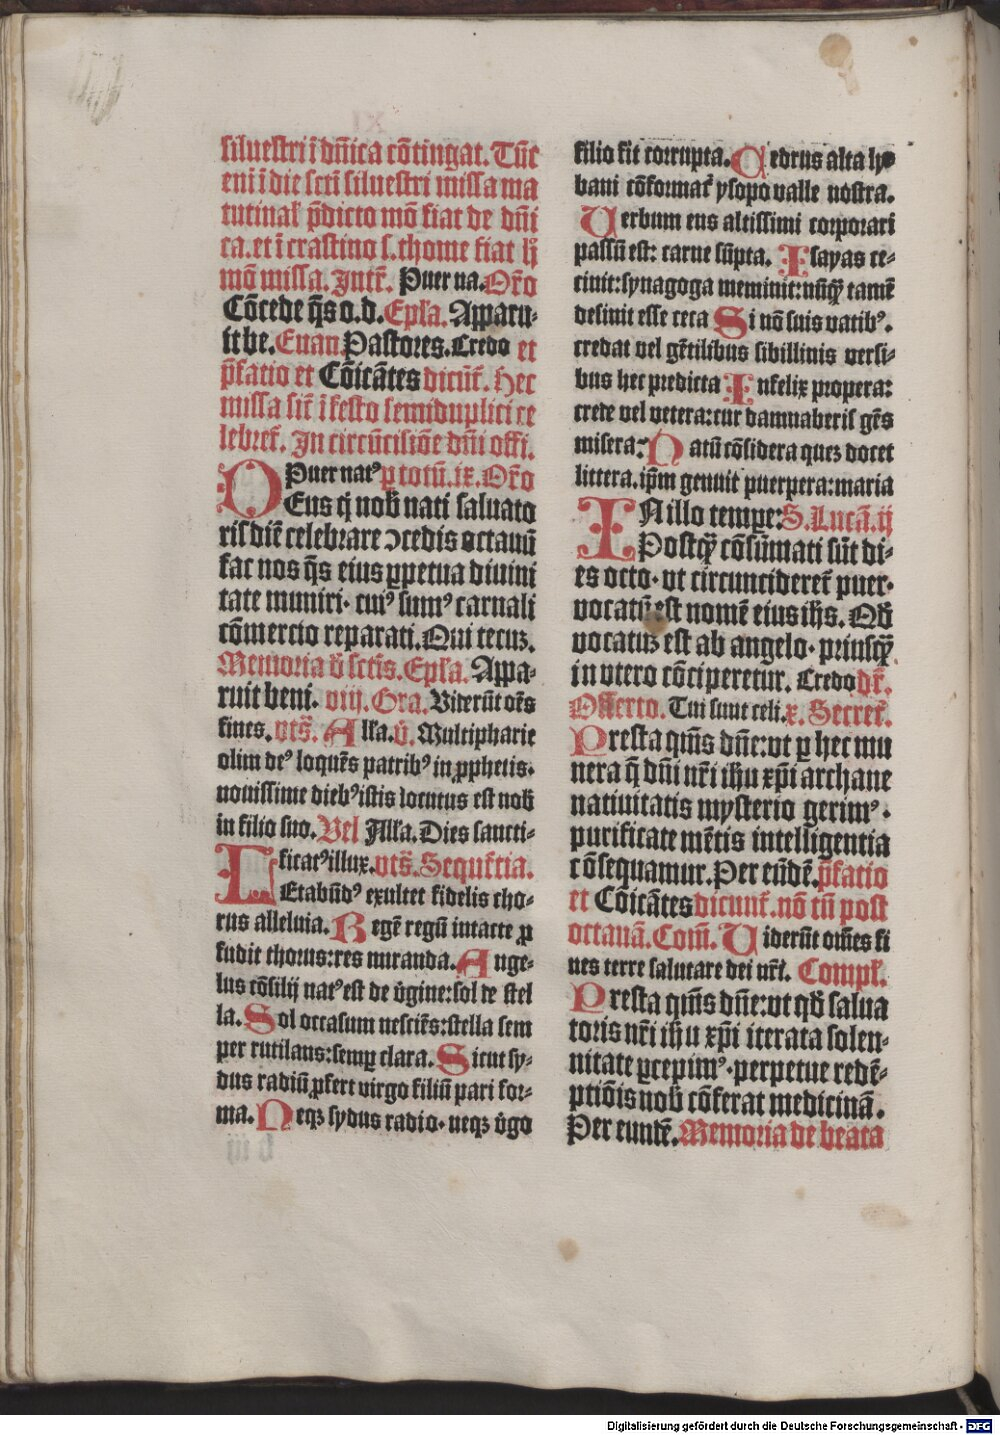 siluestri ī dñica cōtingat. Tūc
eni ī die scti siluestri missa ma
tutinal' p̄dicto mō fiat de dñi
ca. et ī crastino s. thome fiat h̄
mō missa. Intr̄. Puer na. Or̄o
Cōcede q̄s o.d. Epl'a. Apparu-
it be. Euan Pastores. Credo et
p̄fatio et Cōicātes dicūt'. Hec
missa sic̄ ī festo semiduplici ce
lebret'. In circūcisiōe dñi offi.
Puer nat⁹ p totū. ix. Or̄o
DEus q̄ nob̄ nati saluato
ris diē celebrare ↄcedis octauū
fac nos q̄s eius ppetua diuini
tate muniri. cui⁹ sum⁹ carnali
cōmercio reparati. Qui tecuz.
Memoria d̄ sctīs. Epl'a. Appa-
ruit beni. viij. Gra. Viderūt oēs
fines. vts̄. All'a. v̄. Multipharie
olim de⁹ loquēs patrib⁹ in pphetis.
nouissime dieb⁹ istis locutus est nob̄
in filio suo. Vel All'a. Dies sancti-
ficat⁹ illux. vts̄. Sequētia.
LEtabūd⁹ exultet fidelis cho-
rus alleluia. Regē regū intacte p
fudit thorus: res miranda. Ange-
lus cōsilij nat⁹ est de v̄gine: sol de stel
la. Sol occasum nesciēs: stella sem
per rutilans: semp clara. Sicut sy-
dus radiū pfert virgo filiū pari for-
ma. Neqz sydus radio. neqz v̄go
filio fit corrupta. Cedrus alta ly-
bani cōformat' ysopo valle nostra.
Verbum ens altissimi corporari
passū est: carne sūpta. Isayas ce-
cinit: synagoga meminit: nūq̄ tamē
desinit esse ceca Si nō suis vatib⁹.
credat vel gētilibus sibillinis versi-
bus hec predicta Infelix propera:
crede vel vetera: cur damnaberis gēs
misera: Natū cōsidera quez docet
littera. ip̄m genuit puerpera: maria
IN illo tempe: S. Lucā. ij
Postq̄ cōsūmati sūt di-
es octo. vt circuncideret' puer.
vocatū est nomē eius ihs. Qd̄
vocatuz est ab angelo. priusq̄
in vtero cōciperetur. Credo dr̄.
Offerto. Tui sunt celi. x. Secret'.
Presta qm̄s dñe: vt p hec mu
nera q̄ dñi nr̄i ihu xp̄i archane
natiuitatis mysterio gerim⁹.
purificate mētis intelligentia
cōsequamur. Per eūdē. p̄fatio
et Cōicātes dicunt'. nō tñ post
octauā. Com̄. Viderūt om̄es fi
nes terre salutare dei nr̄i. Compl'.
Presta qm̄s dñe: vt qd̄ salua
toris nr̄i ihu xp̄i iterata solen-
nitate pcepim⁹. perpetue redē-
ptiōis nob̄ cōferat medicinā.
Per eundē. Memoria de beata
Digitalisierung gefördert durch die Deutsche Forschungsgemeinschaft - DFG